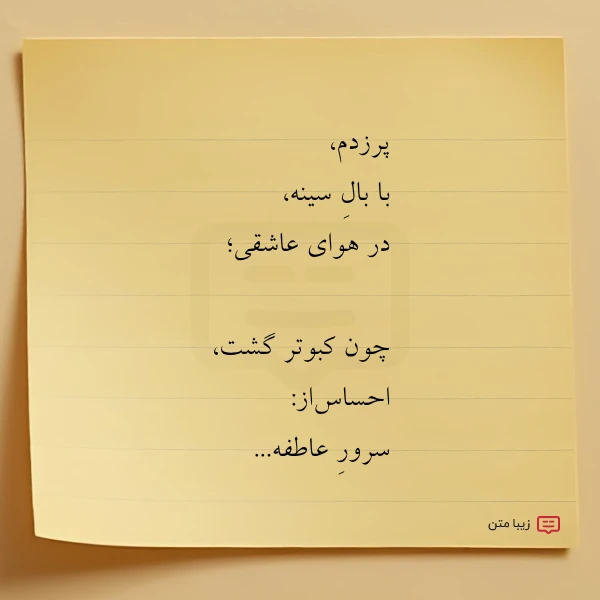 پرزدم،
با بالِ سینه،
در هوای عاشقی؛
چون کبوتر گشت،
احساس‌از:
سرورِ عاطفه...
زیبا متن